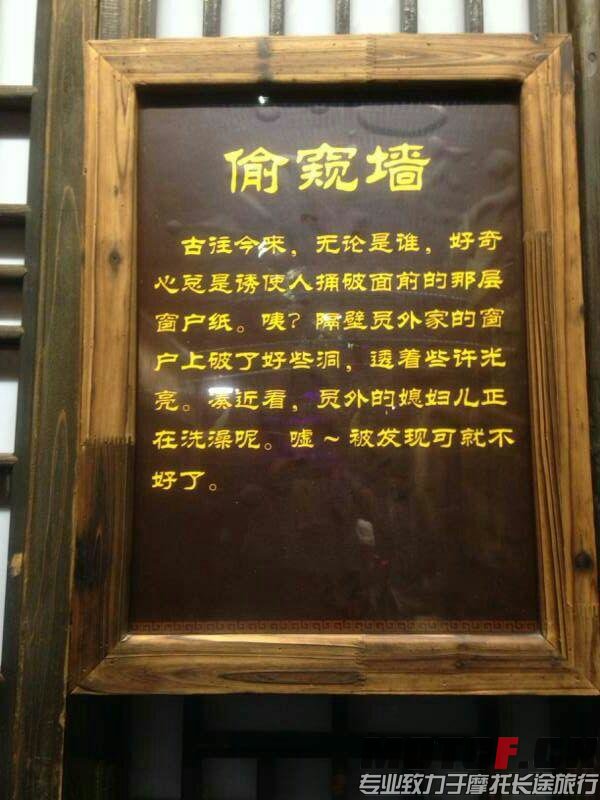 偷窥墙
古往今来，无论是谁，好奇
心总是诱使人捅破面前的那层
窗户纸。咦？隔壁员外家的窗
户上破了好些洞，透着些许光
亮。凑近看，员外的媳妇儿正
在洗澡呢。嘘～被发现可就不
好了。
MOTOF.CN
专业致力于摩托长途旅行